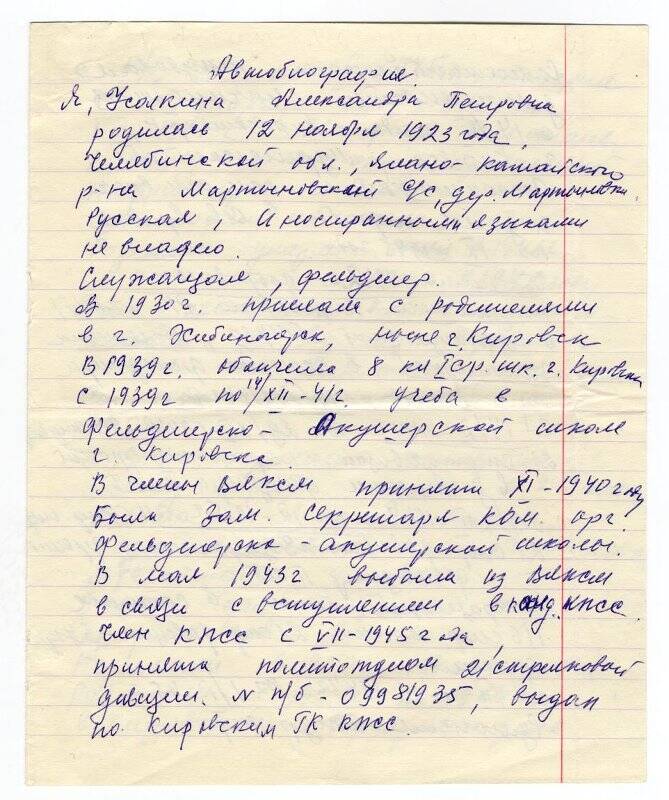 Автобиография.
Я, Усалкина Александра Петровна
родилась 12 ноября 1923 года,
Челябинской обл., Ялано-катайского
р-на Мартыновский С/С, дер. Мартыновка.
Русская, Иностранными языками
не владею.
Служащая, фельдшер.
В 1930г. приехала с родителями
в г. Хибиногорск, ныне г Кировск
В 1939г. окончила 8 кл I ср. шк. г. Кировска
С 1939г по 14/XII-41г. учеба в
Фельдшерско-Акушерской школе
г. Кировска.
В члены ВЛКСМ принята XI-1940 году
Была Зам. Секретаря ком. орг.
Фельдшерско-акушерской школы.
В мая 1943г выбыла из ВЛКСМ
в связи с вступлением в канд. КПСС.
Член КПСС с VII-1945 года
принята политотделом 21 стрелковой
дивизии. N п/б - 09981935, выдан
по Кировским ГК КПСС.